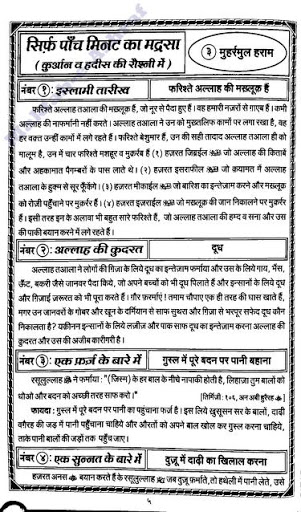 सिर्फ़ पाँच मिनट का मद्रसा
(कुर्आन व हदीस की रौश्नी में)
३ मुहर्रमुल हराम
नंबर १: इस्लामी तारीख
फरिश्ते अल्लाह की मख्लूक हैं
फरिश्ते अल्लाह तआला की मख्लूक हैं, जो नूर से पैदा हुए हैं। वह हमारी नज़रों से गाएब हैं। कभी
अल्लाह की नाफर्मानी नहीं करते। अल्लाह तआला ने उन को मुख्तलिफ कामों पर लगा रखा है, वह
हर वक्त उन्हीं कामों में लगे रहते हैं। फरिश्ते बेशुमार हैं, उन की सही तादाद अल्लाह तआला ही को
मालूम है, उन में चार फरिश्ते मशहूर व मुकर्रब हैं (१) हज़रत जिब्रईल जो अल्लाह की किताबें
और अहकामात पैगम्बरों के पास लाते थे। (२) हज़रत इसराफील जो क़यामत में अल्लाह
तआला के हुक्म से सूर फूँकेंगे। (३) हज़रत मीकाईल जो बारिश का इन्तेज़ाम करने और मख्लूक
को रोज़ी पहुँचाने पर मुकर्रर हैं। (४) हज़रत इज़राईल जो मख्लूक की जान निकालने पर मुकर्रर
हैं। इसी तरह इन के अलावा भी बहुत सारे फरिश्ते हैं, जो अल्लाह तआला की हम्द व सना और उस
की पाकी बयान करने में लगे रहते हैं।
नंबर २: अल्लाह की कुदरत
दूध
अल्लाह तआला ने लोगों की गिज़ा के लिये दूध का इन्तेज़ाम फर्माया और उस के लिये गाय, भैंस,
ऊँट, बकरी जैसे जानवर पैदा किये, जो अपने बच्चों को भी दूध पिलाते हैं और इन्सानों के लिये दूध
और गिज़ाई ज़रूरत को भी पूरा करते हैं। गौर फ़र्माएं! तमाम चौपाए एक ही तरह की घास खाते हैं,
मगर उन जानवरों के गोबर और खून के दर्मियान से साफ सुथरा और गिज़ा से भरपूर सफेद दूध कौन
निकालता है? यकीनन इन्सानों के लिये लज़ीज़ और पाक साफ दूध का इन्तेज़ाम करना अल्लाह की
कुदरत और उस की अजीब कारीगरी है।
नंबर ३: एक फ़र्ज़ के बारे में
गुस्ल में पूरे बदन पर पानी बहाना
रसूलुल्लाह ने फर्माया: "(जिस्म) के हर बाल के नीचे नापाकी होती है, लिहाज़ा तुम बालों को
धोओ और बदन को अच्छी तरह साफ करो।"
[तिर्मिज़ी: १०६, अन अबी हुरैरह]
फायदा: गुस्ल में पूरे बदन पर पानी का पहुंचाना फर्ज़ है। इस लिये खुसूसन सर के बालों, दाढ़ी
वगैरह की जड़ में पानी पहुँचाना चाहिये और औरतों को अपने बाल खोल कर गुस्ल करना चाहिये,
ताके पानी बालों की जड़ों तक पहुँच जाए।
नंबर ४: एक सुन्नत के बारे में
वुज़ू में दाढ़ी का खिलाल करना
हज़रत अनस बयान करते हैं के रसूलुल्लाह जब वुज़ू फ़र्माते, तो हथेली में पानी लेते, उसे
५